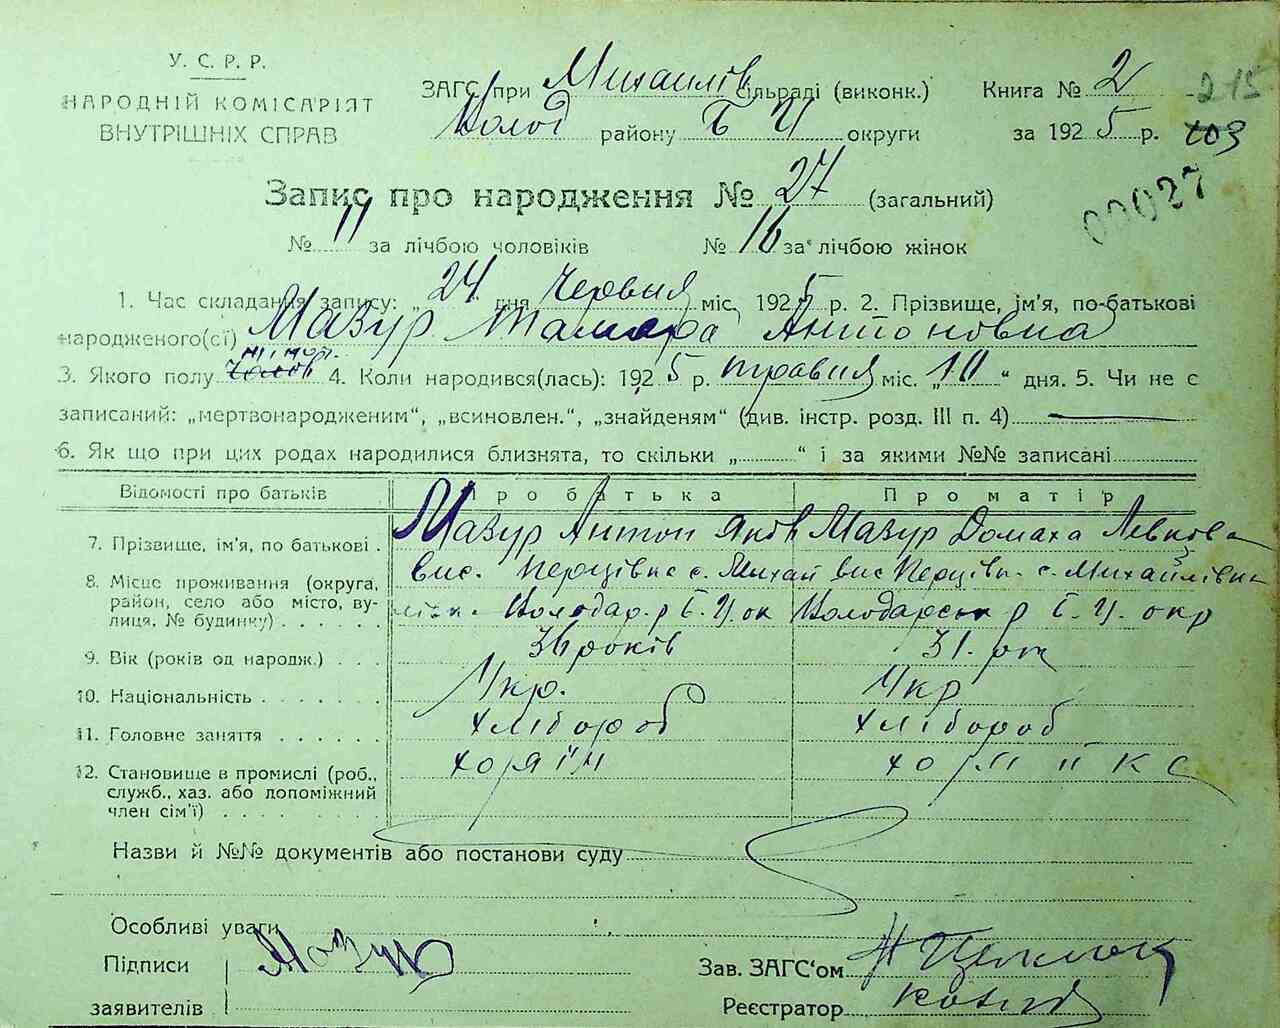 У. С. Р. Р.
НАРОДНІЙ КОМІСАРІЯТ
ВНУТРІШНІХ СПРАВ
ЗАГС при Михайлів сільраді (виконк.) Книга № 2 215
Волод району Б Ц округи за 1925 р. 103
Запис про народження № 27 (загальний)
00027
№ 11 за лічбою чоловіків № 16 за лічбою жінок
1. Час складання запису: „24“ дня Червня міс. 1925 р. 2. Прізвище, ім'я, по-батькові
народженого(сї) Мазур Тамара Антоновна
3. Якого полу жіночої 4. Коли народився(лась): 1925 р. травня міс. „10“ дня. 5. Чи не є
записаний: „мертвонародженим“, „всиновлен.“, „знайденям“ (див. інстр. розд. III п. 4)
6. Як що при цих родах народилися близнята, то скільки „ “ і за якими №№ записані
Відомості про батьків Про батька Про матір
7. Прізвище, ім'я, по батькові . Мазур Антон Яков Мазур Домаха Левкова
8. Місце проживання (округа, вис. Перцівка с. Михай вис Перцівк. с. Михайлівка
район, село або місто, ву- Володар. р Б. Ц. ок Володарськ р Б. Ц. окр
лиця, № будинку)
9. Вік (років од народж.) . . . 36 років 31. рік
10. Національність Укр. Укр
11. Головне заняття хлібороб хлібороб
12. Становище в промислі (роб., хозяїн хозяйка
служб., хаз. або допоміжний
член сім'ї)
Назви й №№ документів або постанови суду
Особливі уваги
Підписи Мазур Зав. ЗАГС'ом
заявителів Реєстратор